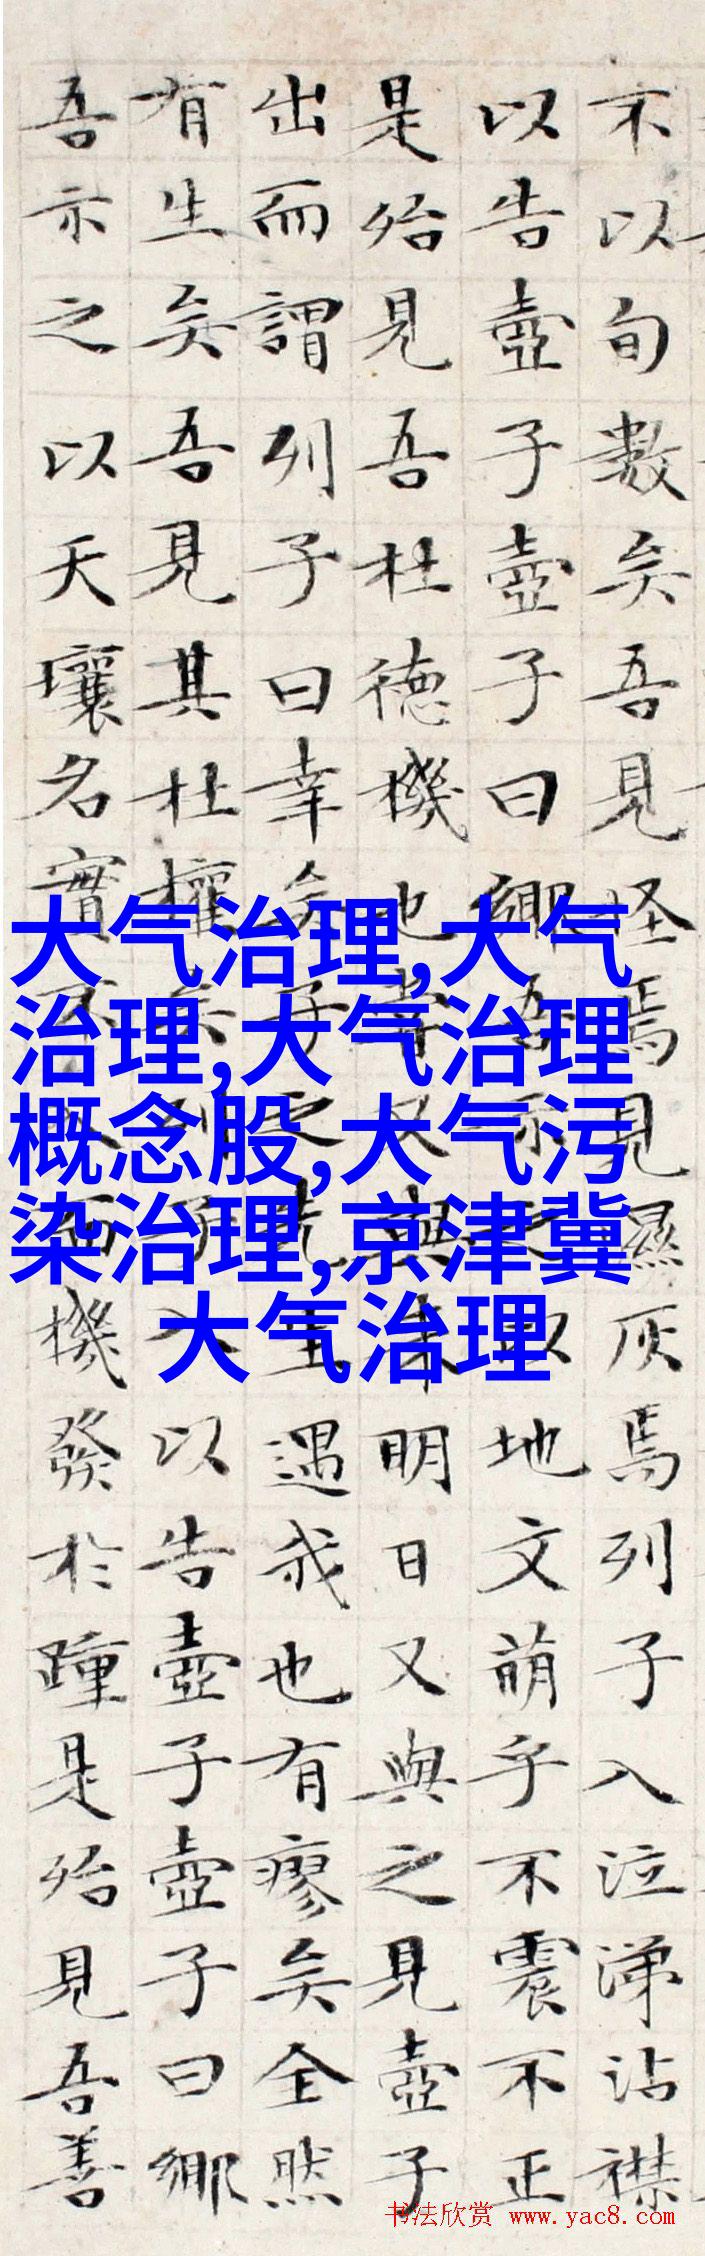 不以旬數矣吾見怪焉見濕灰焉列子入泣涕沾襟
以告壺子壺子曰鄉吾示之以地文萌乎不震不正
是殆見吾杜德機也嘗又與來明日又與之見壺子
出而謂列子曰幸矣子之先生遇我也有瘳矣全然
有生矣吾見其杜權矣列子入以告壺子壺子曰鄉
吾示之以天壤名實不入而機發於踵是殆見吾善
大气治理,大气
治理,大气治理
概念股,大气污
染治理,京津冀
大气治理
书法欣赏 www.yac8.com